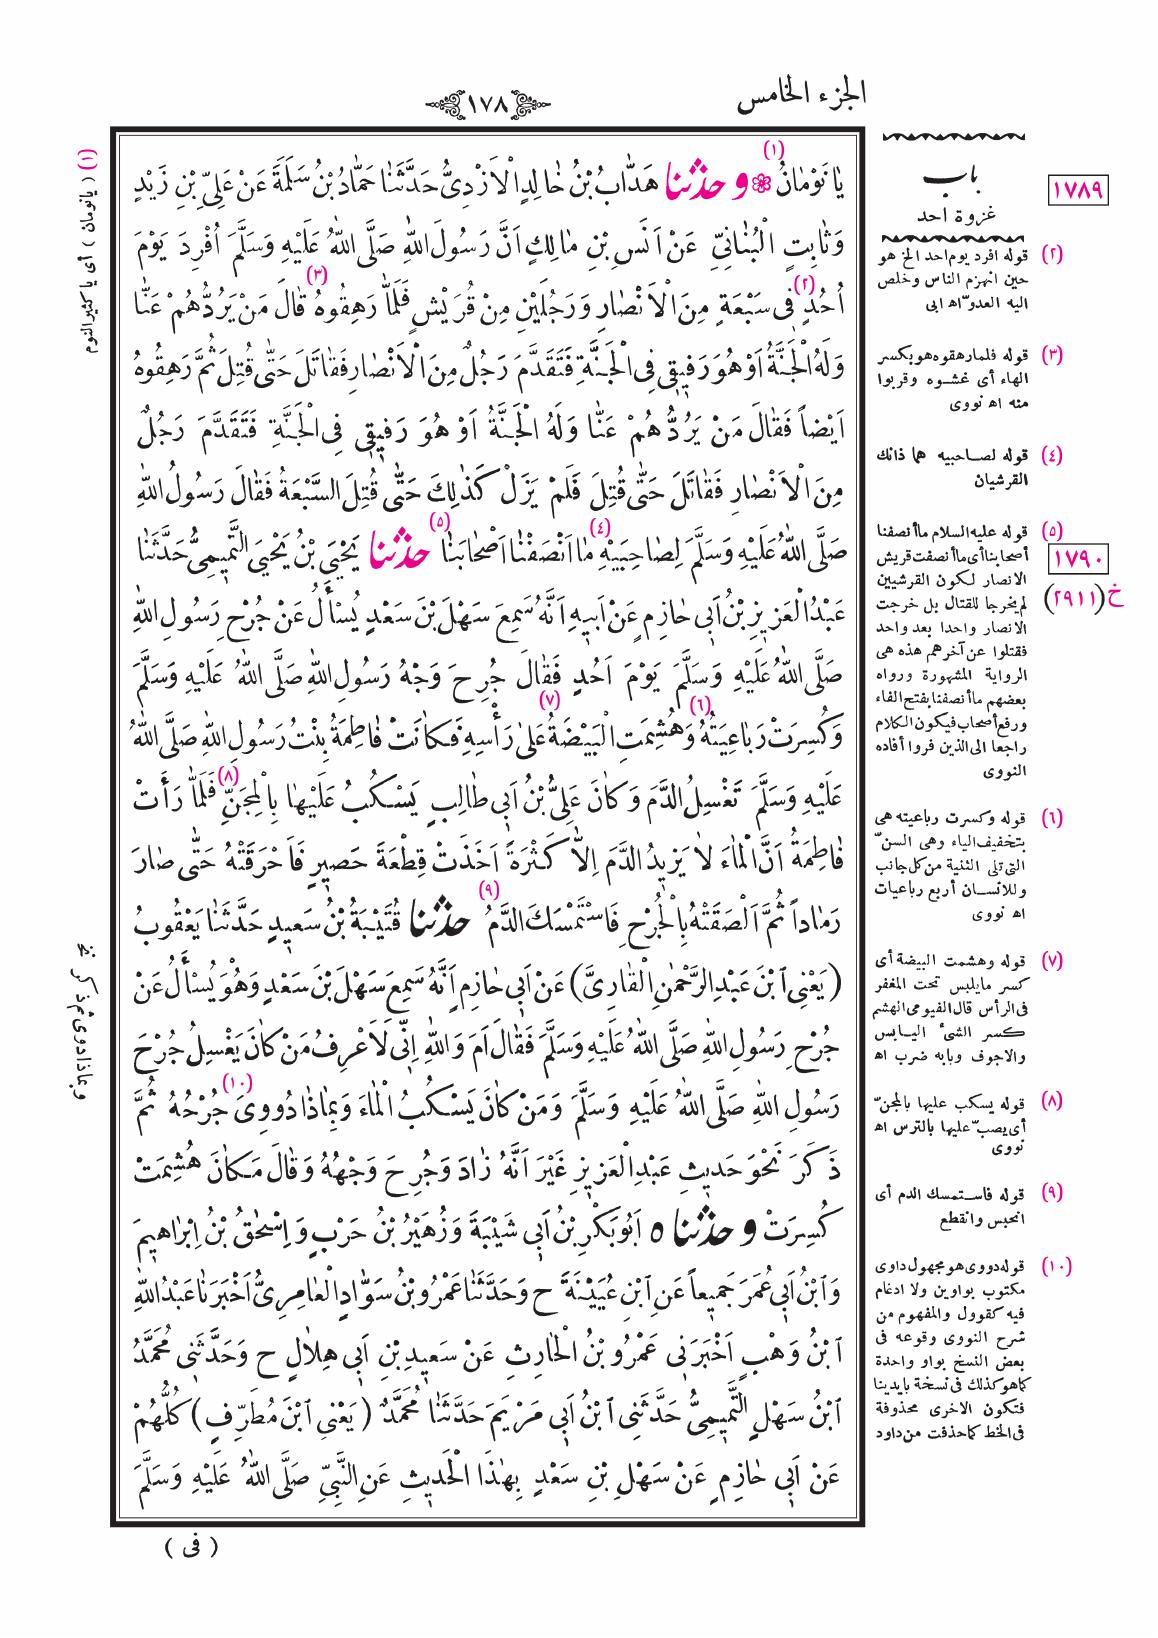 الجزء الخامس
١٧٨
يَا نَوْمَانُ (١) ۞ وحدثنا هَدَّابُ بْنُ خَالِدٍ الْاَزْدِىُّ حَدَّثَنَا حَمَّادُ بْنُ سَلَمَةَ عَنْ عَلِىِّ بْنِ زَيْدٍ
وَثَابِتٍ الْبُنَانِىِّ عَنْ اَنَسِ بْنِ مَالِكٍ اَنَّ رَسُولَ اللّٰهِ صَلَّى اللّٰهُ عَلَيْهِ وَسَلَّمَ اُفْرِدَ يَوْمَ
اُحُدٍ (٢) فِى سَبْعَةٍ مِنَ الْاَنْصَارِ وَرَجُلَيْنِ مِنْ قُرَيْشٍ فَلَمَّا رَهِقُوهُ (٣) قَالَ مَنْ يَرُدُّهُمْ عَنَّا
وَلَهُ الْجَنَّةُ اَوْ هُوَ رَفِيقِى فِى الْجَنَّةِ فَتَقَدَّمَ رَجُلٌ مِنَ الْاَنْصَارِ فَقَاتَلَ حَتَّى قُتِلَ ثُمَّ رَهِقُوهُ
اَيْضاً فَقَالَ مَنْ يَرُدُّهُمْ عَنَّا وَلَهُ الْجَنَّةُ اَوْ هُوَ رَفِيقِى فِى الْجَنَّةِ فَتَقَدَّمَ رَجُلٌ
مِنَ الْاَنْصَارِ فَقَاتَلَ حَتَّى قُتِلَ فَلَمْ يَزَلْ كَذٰلِكَ حَتَّى قُتِلَ السَّبْعَةُ فَقَالَ رَسُولُ اللّٰهِ
صَلَّى اللّٰهُ عَلَيْهِ وَسَلَّمَ لِصَاحِبَيْهِ (٤) مَا اَنْصَفْنَا اَصْحَابَنَا (٥) حدثنا يَحْيَى بْنُ يَحْيَى التَّمِيمِىُّ حَدَّثَنَا
عَبْدُ الْعَزِيزِ بْنُ اَبِى حَازِمٍ عَنْ اَبِيهِ اَنَّهُ سَمِعَ سَهْلَ بْنَ سَعْدٍ يُسْأَلُ عَنْ جُرْحِ رَسُولِ اللّٰهِ
صَلَّى اللّٰهُ عَلَيْهِ وَسَلَّمَ يَوْمَ اُحُدٍ فَقَالَ جُرِحَ وَجْهُ رَسُولِ اللّٰهِ صَلَّى اللّٰهُ عَلَيْهِ وَسَلَّمَ
وَكُسِرَتْ رَبَاعِيَتُهُ (٦) وَهُشِمَتِ الْبَيْضَةُ عَلٰى رَأْسِهِ (٧) فَكَانَتْ فَاطِمَةُ بِنْتُ رَسُولِ اللّٰهِ صَلَّى اللّٰهُ
عَلَيْهِ وَسَلَّمَ تَغْسِلُ الدَّمَ وَكَانَ عَلِىُّ بْنُ اَبِى طَالِبٍ يَسْكُبُ عَلَيْهَا بِالْمِجَنِّ (٨) فَلَمَّا رَأَتْ
فَاطِمَةُ اَنَّ الْمَاءَ لَا يَزِيدُ الدَّمَ اِلَّا كَثْرَةً اَخَذَتْ قِطْعَةَ حَصِيرٍ فَاَحْرَقَتْهُ حَتَّى صَارَ
رَمَاداً ثُمَّ اَلْصَقَتْهُ بِالْجُرْحِ فَاسْتَمْسَكَ الدَّمُ (٩) حدثنا قُتَيْبَةُ بْنُ سَعِيدٍ حَدَّثَنَا يَعْقُوبُ
(يَعْنِى ابْنَ عَبْدِ الرَّحْمٰنِ الْقَارِىَّ) عَنْ اَبِى حَازِمٍ اَنَّهُ سَمِعَ سَهْلَ بْنَ سَعْدٍ وَهُوَ يُسْأَلُ عَنْ
جُرْحِ رَسُولِ اللّٰهِ صَلَّى اللّٰهُ عَلَيْهِ وَسَلَّمَ فَقَالَ اَمَ وَاللّٰهِ اِنِّى لَاَعْرِفُ مَنْ كَانَ يَغْسِلُ جُرْحَ
رَسُولِ اللّٰهِ صَلَّى اللّٰهُ عَلَيْهِ وَسَلَّمَ وَمَنْ كَانَ يَسْكُبُ الْمَاءَ وَبِمَاذَا دُووِىَ (١٠) جُرْحُهُ ثُمَّ
ذَكَرَ نَحْوَ حَدِيثِ عَبْدِ الْعَزِيزِ غَيْرَ اَنَّهُ زَادَ وَجُرِحَ وَجْهُهُ وَقَالَ مَكَانَ هُشِمَتْ
كُسِرَتْ وحدثناه اَبُو بَكْرِ بْنُ اَبِى شَيْبَةَ وَزُهَيْرُ بْنُ حَرْبٍ وَاِسْحٰقُ بْنُ اِبْرَاهِيمَ
وَابْنُ اَبِى عُمَرَ جَمِيعاً عَنِ ابْنِ عُيَيْنَةَ ح وَحَدَّثَنَا عَمْرُو بْنُ سَوَّادٍ الْعَامِرِىُّ اَخْبَرَنَا عَبْدُ اللّٰهِ
ابْنُ وَهْبٍ اَخْبَرَنِى عَمْرُو بْنُ الْحَارِثِ عَنْ سَعِيدِ بْنِ اَبِى هِلَالٍ ح وَحَدَّثَنِى مُحَمَّدُ
ابْنُ سَهْلٍ التَّمِيمِىُّ حَدَّثَنِى ابْنُ اَبِى مَرْيَمَ حَدَّثَنَا مُحَمَّدٌ (يَعْنِى ابْنَ مُطَرِّفٍ) كُلُّهُمْ
عَنْ اَبِى حَازِمٍ عَنْ سَهْلِ بْنِ سَعْدٍ بِهٰذَا الْحَدِيثِ عَنِ النَّبِىِّ صَلَّى اللّٰهُ عَلَيْهِ وَسَلَّمَ
(فى)
١٧٨٩
باب
غزوة احد
(٢) قوله افرد يوم احد الخ هو
حين انهزم الناس وخلص
اليه العدوّ اه ابى
(٣) قوله فلما رهقوه هو بكسر
الهاء أى غشوه وقربوا
منه اه نووى
(٤) قوله لصاحبيه هما ذانك
القرشيان
(٥) قوله عليه السلام ما أنصفنا
أصحابنا أى ما أنصفت قريش
الانصار لكون القرشيين
لم يخرجا للقتال بل خرجت
الانصار واحدا بعد واحد
فقتلوا عن آخرهم هذه هى
الرواية المشهورة ورواه
بعضهم ما أنصفنا بفتح الفاء
ورفع أصحاب فيكون الكلام
راجعا الى الذين فروا أفاده
النووى
١٧٩٠
خ (٢٩١١)
(٦) قوله وكسرت رباعيته هى
بتخفيف الياء وهى السنّ
التى تلى الثنية من كل جانب
وللانسان أربع رباعيات
اه نووى
(٧) قوله وهشمت البيضة أى
كسر ما يلبس تحت المغفر
فى الرأس قال الفيومى الهشم
كسر الشىء اليابس
والاجوف وبابه ضرب اه
(٨) قوله يسكب عليها بالمجنّ
أى يصبّ عليها بالترس اه
نووى
(٩) قوله فاستمسك الدم أى
انحبس وانقطع
(١٠) قوله دووى هو مجهول داوى
مكتوب بواوين ولا ادغام
فيه كقوول والمفهوم من
شرح النووى وقوعه فى
بعض النسخ بواو واحدة
كما هو كذلك فى نسخة بايدينا
فتكون الاخرى محذوفة
فى الخط كما حذفت من داود
(١) (يانومان) أى يا كثير النوم
وبماذا دوى نخ